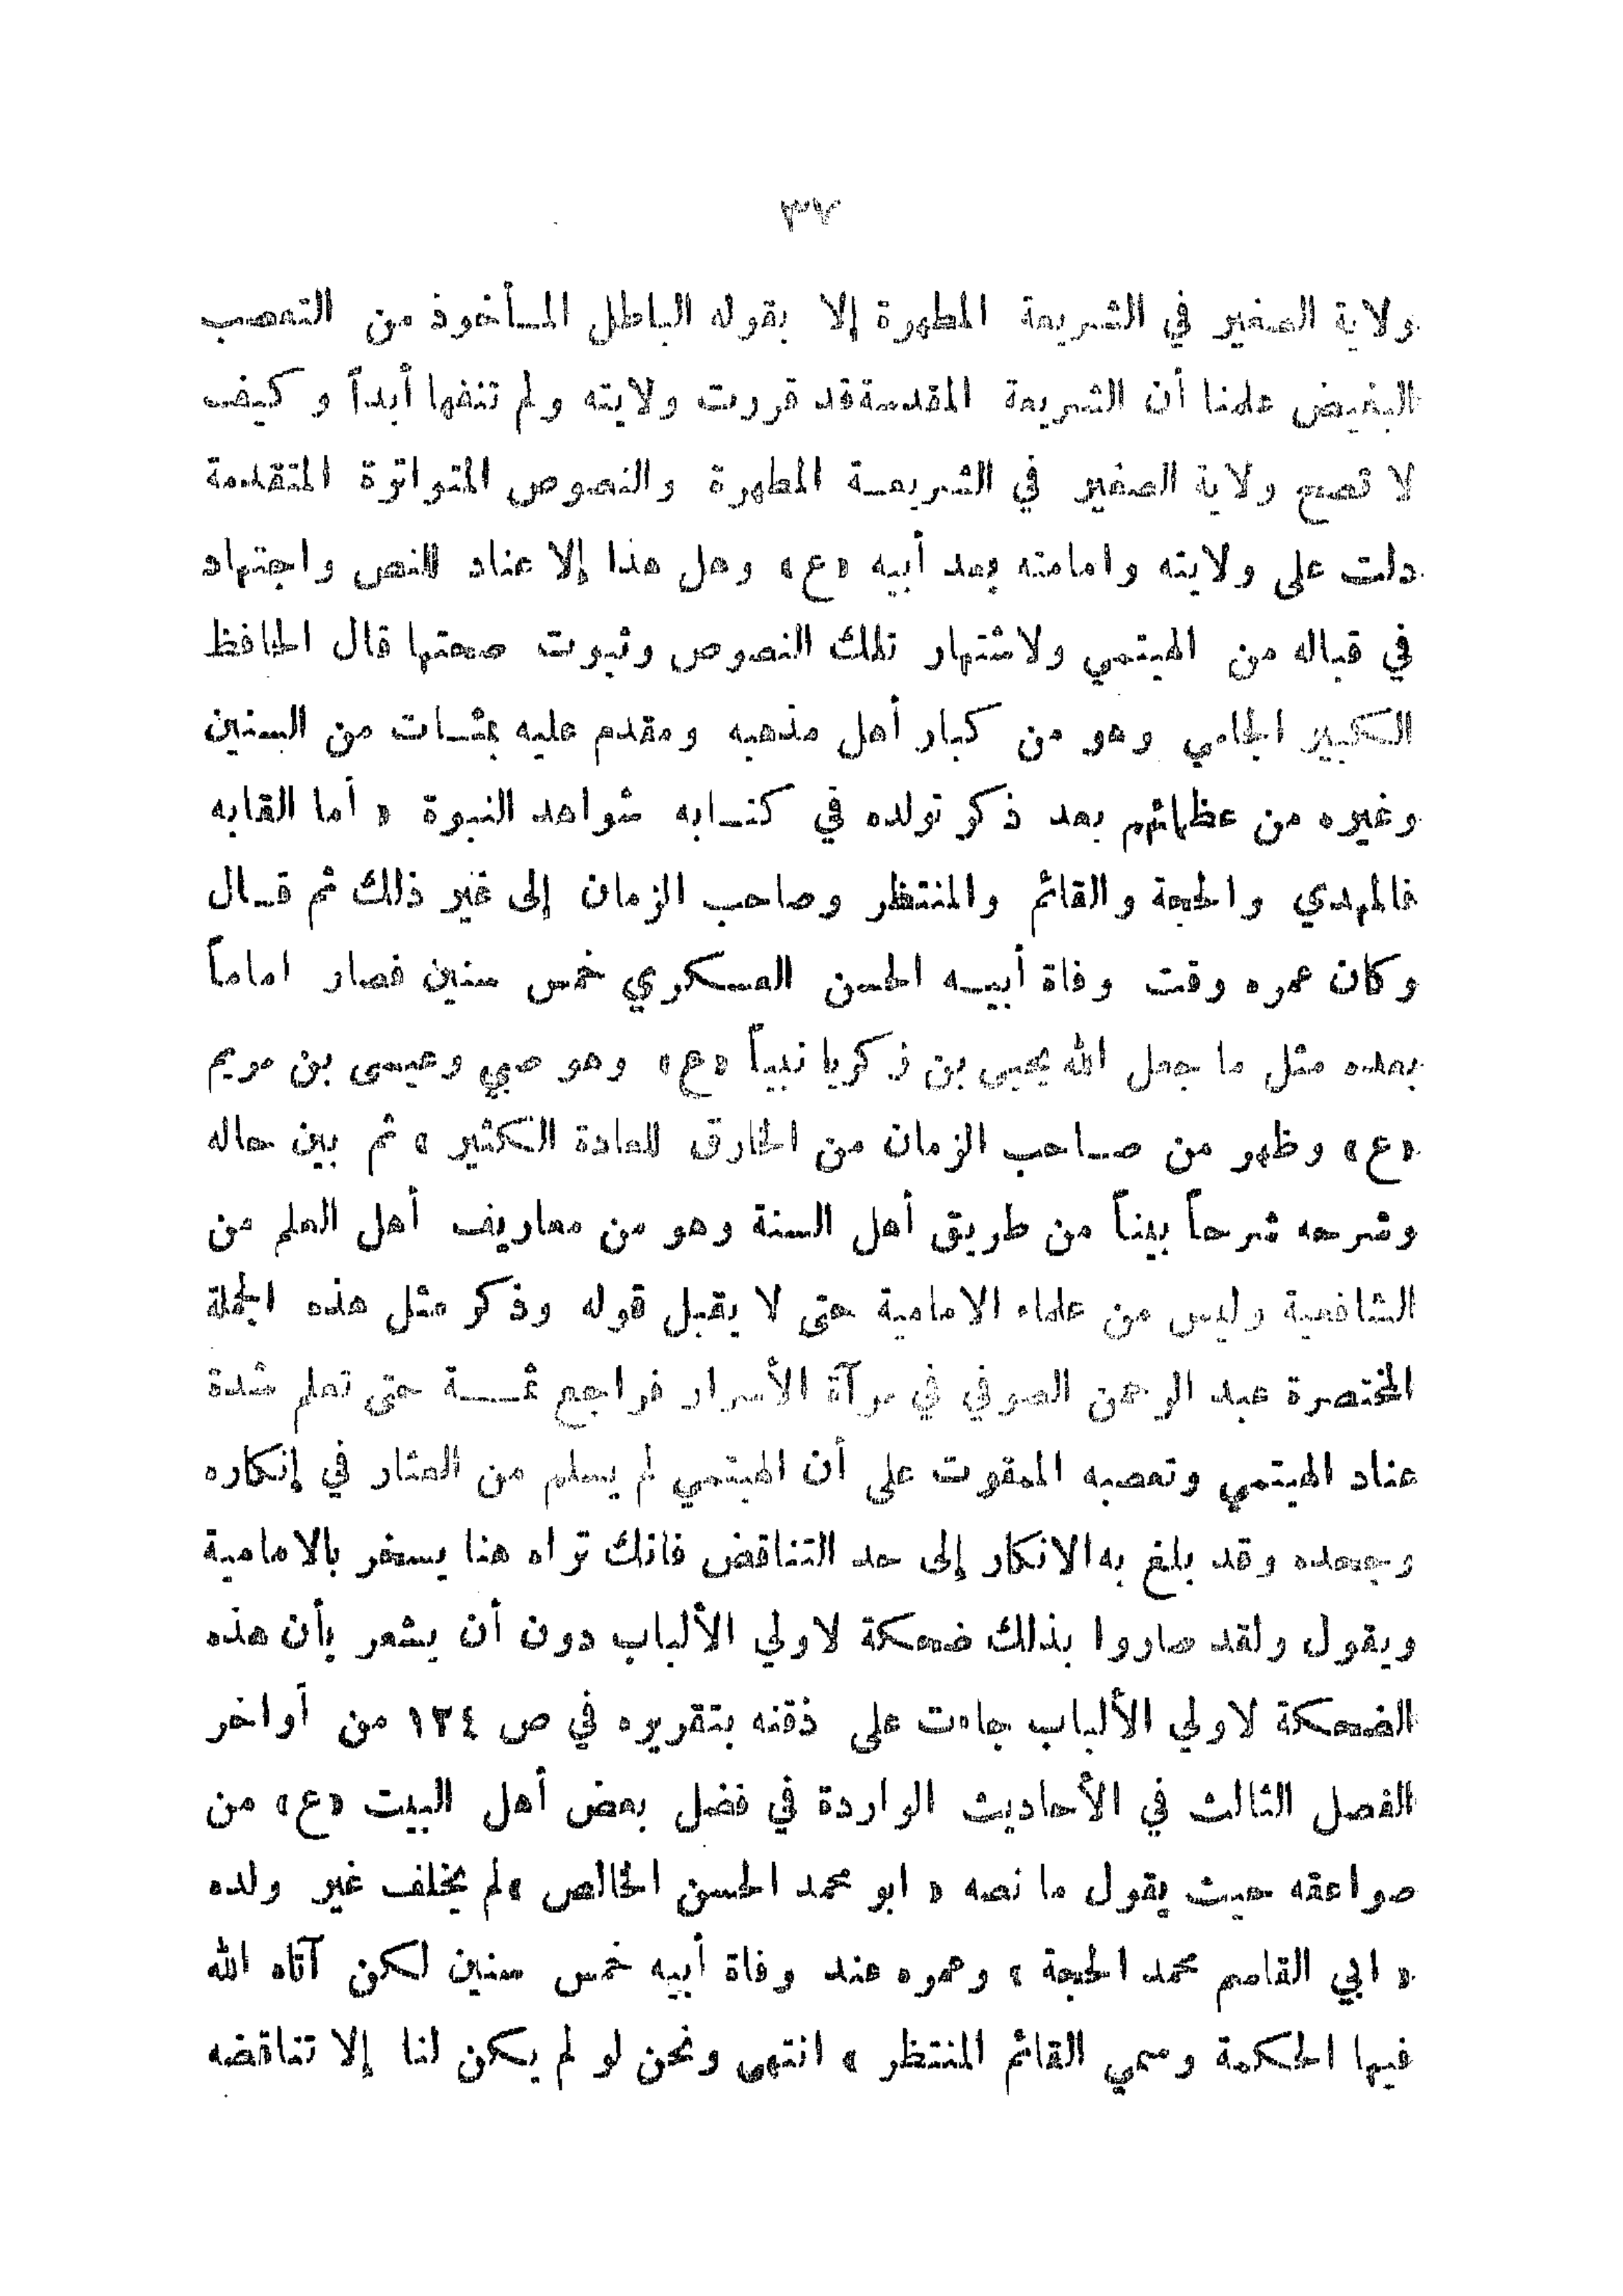 ٣٧
ولاية الصغير في الشريعة المطهرة إلا بقوله الباطل المـأخوذ من التعصب
البغيض علمنا أن الشريعة المقدسة قد قررت ولايته ولم تنفها أبداً وكيف
لا تصح ولاية الصغير في الشريعـة المطهرة والنصوص المتواترة المتقدمة
دلت على ولايته وامامته بعد أبيه «ع» وهل هذا إلا عناد للنص واجتهاد
في قباله من الهيتمي ولاشتهار تلك النصوص وثبوت صحتها قال الحافظ
الكبير الجامي وهو من كبار أهل مذهبه ومقدم عليه بمئـات من السنين
وغيره من عظمائهم بعد ذكر تولده في كتـابه شواهد النبوة « أما القابه
فالمهدي والحجة والقائم والمنتظر وصاحب الزمان إلى غير ذلك ثم قـال
وكان عمره وقت وفاة أبيـه الحسن العسكري خمس سنين فصار اماماً
بعده مثل ما جعل الله يحيى بن زكريا نبياً «ع» وهو صبي وعيسى بن مريم
«ع» وظهر من صـاحب الزمان من الخارق للعادة الكثير » ثم بين حاله
وشرحه شرحاً بيناً من طريق أهل السنة وهو من معاريف أهل العلم من
الشافعية وليس من علماء الامامية حتى لا يقبل قوله وذكر مثل هذه الجملة
المختصرة عبد الرحمن الصوفي في مرآة الأسرار فراجع ثمـــة حتى تعلم شدة
عناد الهيتمي وتعصبه الممقوت على أن الهيتمي لم يسلم من العثار في إنكاره
وجحده وقد بلغ به الانكار إلى حد التناقض فانك تراه هنا يسخر بالامامية
ويقول ولقد صاروا بذلك ضحكة لاولي الألباب دون أن يشعر بأن هذه
الضحكة لاولي الألباب جاءت على ذقنه بتقريره في ص ١٢٤ من أواخر
الفصل الثالث في الأحاديث الواردة في فضل بعض أهل البيت «ع» من
صواعقه حيث يقول ما نصه « ابو محمد الحسن الخالص » لم يخلف غير ولده
« ابي القاسم محمد الحجة » وعمره عند وفاة أبيه خمس سنين لكن آتاه الله
فيها الحكمة وسمي القائم المنتظر » انتهى ونحن لو لم يكن لنا إلا تناقضه